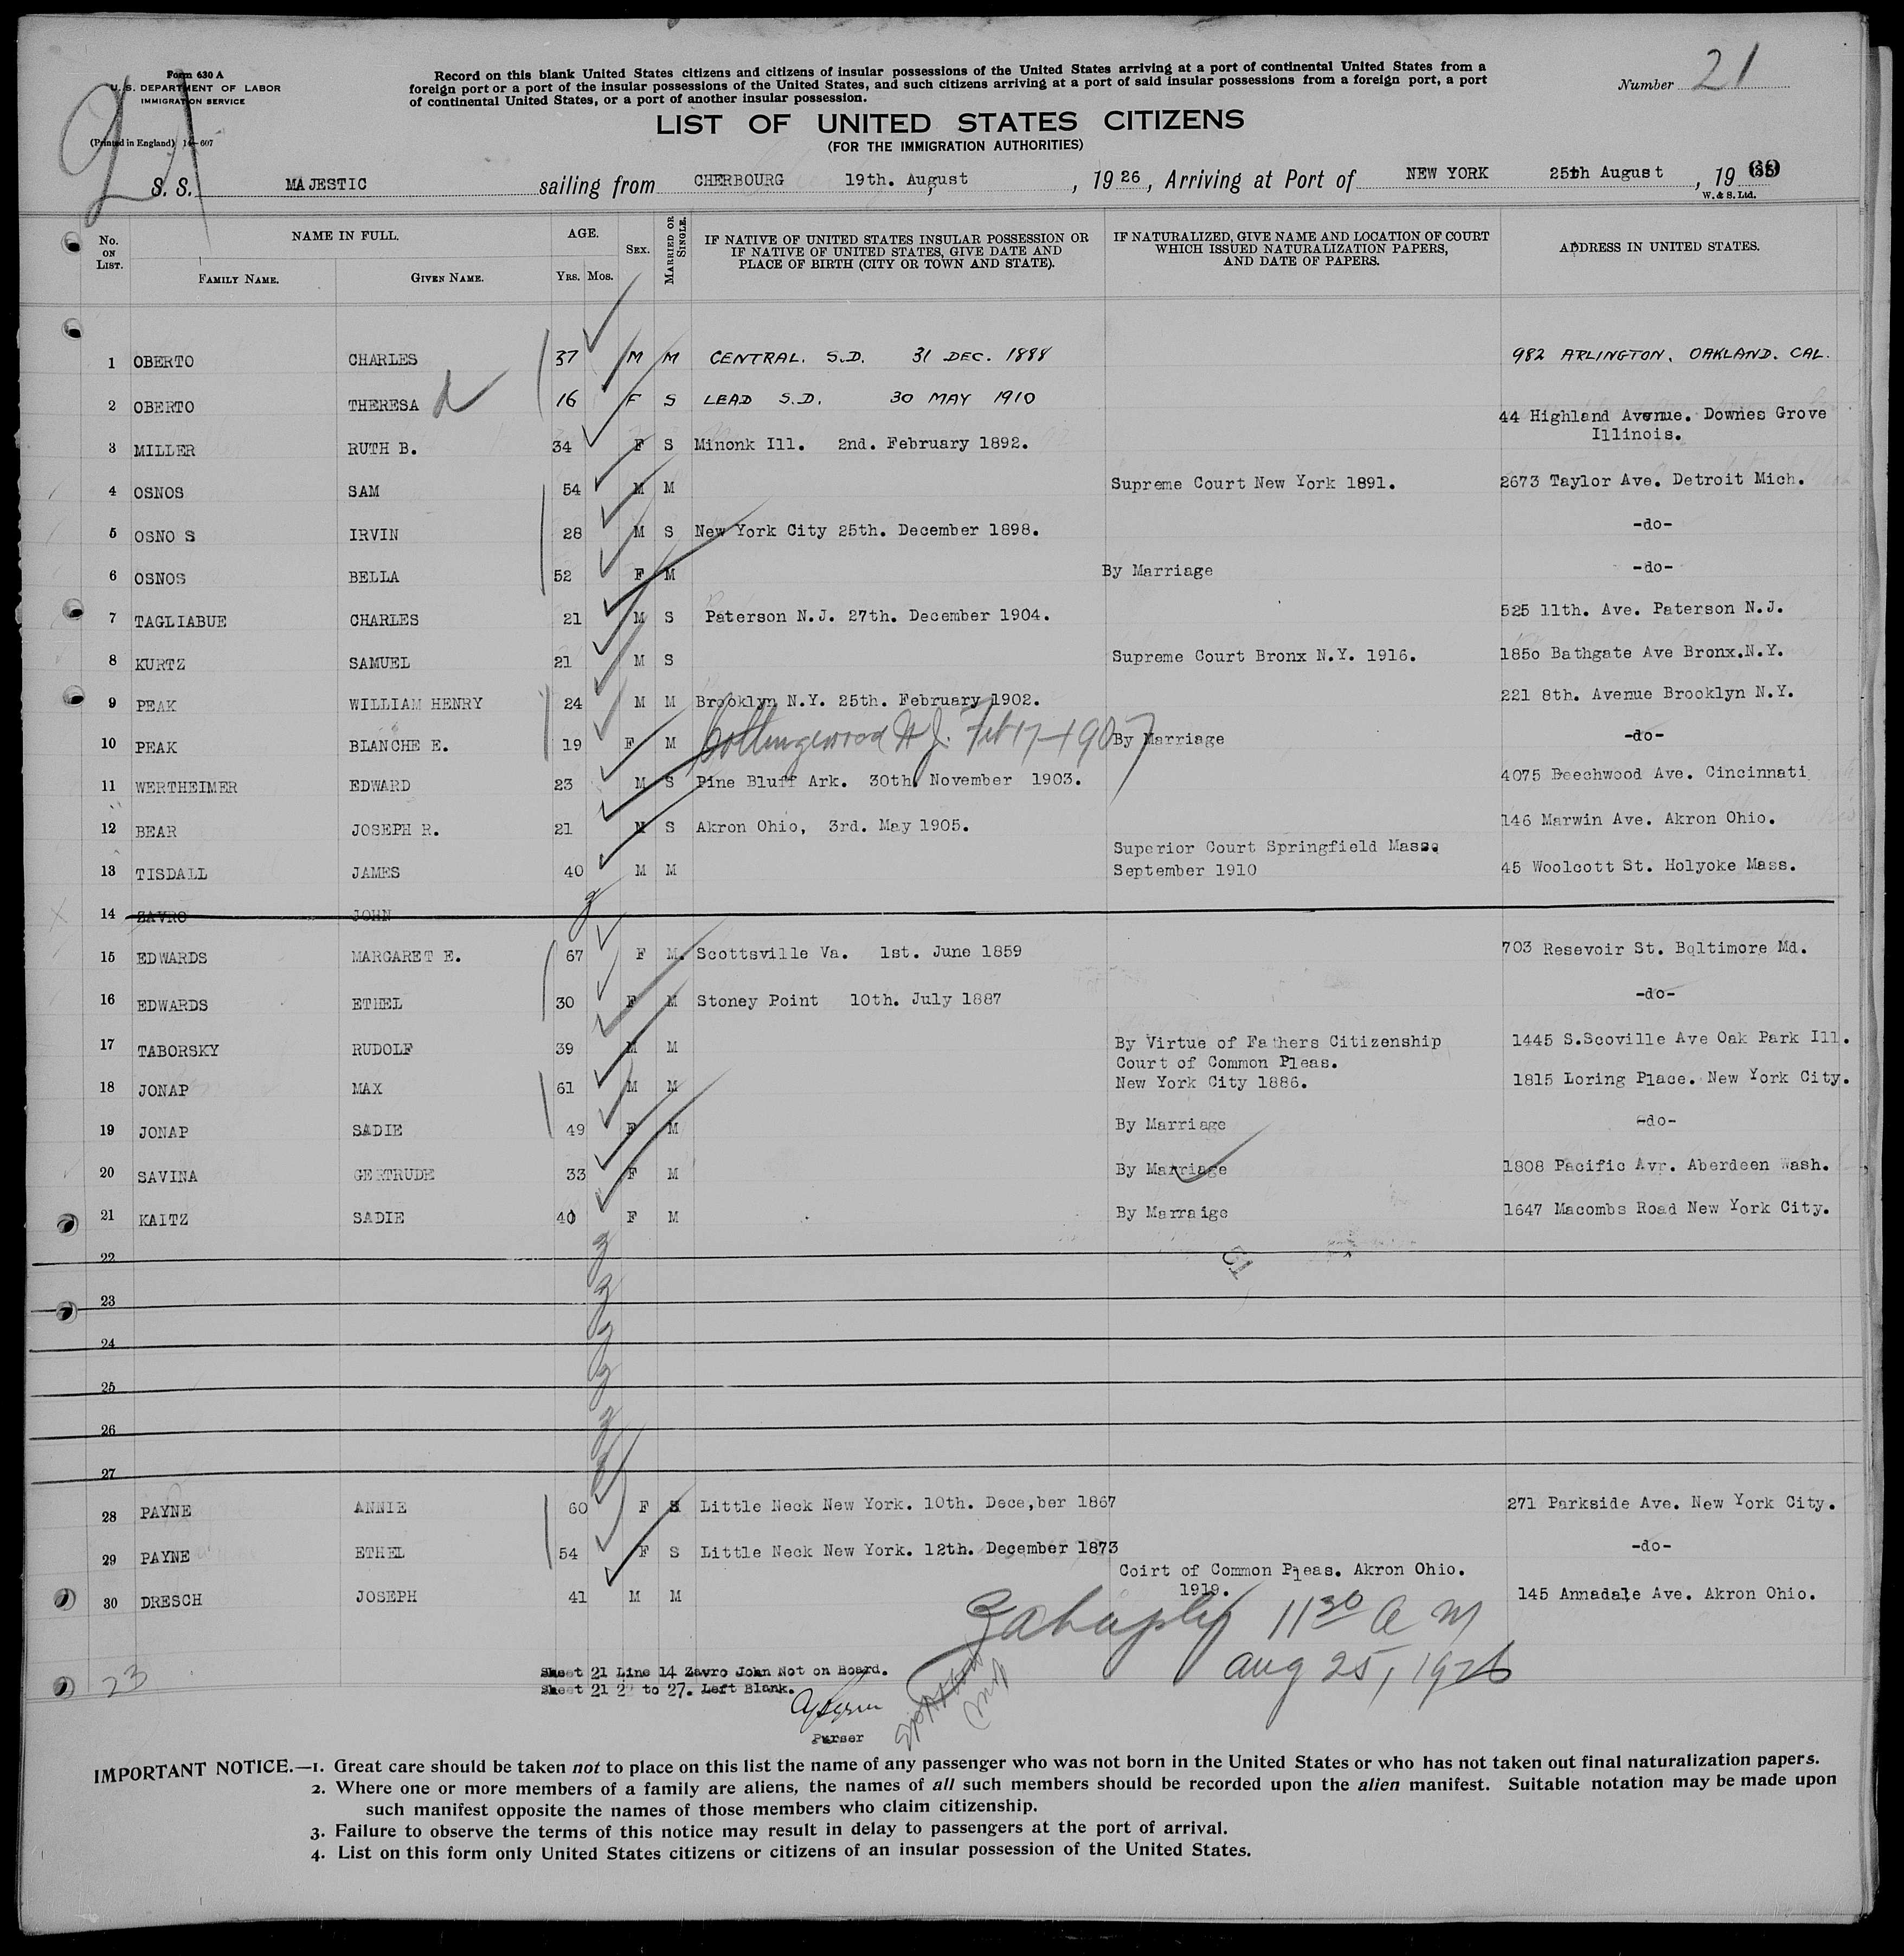 Form 630 A
U. S. DEPARTMENT OF LABOR
IMMIGRATION SERVICE
(Printed in England) 14—607
21
Record on this blank United States citizens and citizens of insular possessions of the United States arriving at a port of continental United States from a
foreign port or a port of the insular possessions of the United States, and such citizens arriving at a port of said insular possessions from a foreign port, a port
of continental United States, or a port of another insular possession.
Number 21
LIST OF UNITED STATES CITIZENS
(FOR THE IMMIGRATION AUTHORITIES)
S. S. MAJESTIC sailing from CHERBOURG 19th. August, 1926, Arriving at Port of NEW YORK 25th August, 19
W. & S. Ltd.
No. ON LIST. NAME IN FULL. AGE. SEX. MARRIED OR SINGLE. IF NATIVE OF UNITED STATES INSULAR POSSESSION OR IF NATIVE OF UNITED STATES, GIVE DATE AND PLACE OF BIRTH (CITY OR TOWN AND STATE). IF NATURALIZED, GIVE NAME AND LOCATION OF COURT WHICH ISSUED NATURALIZATION PAPERS, AND DATE OF PAPERS. ADDRESS IN UNITED STATES.
FAMILY NAME. GIVEN NAME. YRS. MOS.
1 OBERTO CHARLES 37 M M CENTRAL. S.D. 31 DEC. 1888 982 ARLINGTON. OAKLAND. CAL.
2 OBERTO THERESA 16 F S LEAD S.D. 30 MAY 1910
3 MILLER RUTH B. 34 F S Minonk Ill. 2nd. February 1892. 44 Highland Avenue. Downes Grove
Illinois.
4 OSNOS SAM 54 M M Supreme Court New York 1891. 2673 Taylor Ave. Detroit Mich.
5 OSNO S IRVIN 28 M S New York City 25th. December 1898. -do-
6 OSNOS BELLA 52 F M By Marriage -do-
7 TAGLIABUE CHARLES 21 M S Paterson N.J. 27th. December 1904. 525 11th. Ave. Paterson N.J.
8 KURTZ SAMUEL 21 M S Supreme Court Bronx N.Y. 1916. 1850 Bathgate Ave Bronx.N.Y.
9 PEAK WILLIAM HENRY 24 M M Brooklyn N.Y. 25th. February 1902. 221 8th. Avenue Brooklyn N.Y.
10 PEAK BLANCHE E. 19 F M Collingswood N J. Feb 17-1907 By Marriage -do-
11 WERTHEIMER EDWARD 23 M S Pine Bluff Ark. 30th. November 1903. 4075 Beechwood Ave. Cincinnati
12 BEAR JOSEPH R. 21 M S Akron Ohio, 3rd. May 1905. 146 Marwin Ave. Akron Ohio.
13 TISDALL JAMES 40 M M Superior Court Springfield Mass.
September 1910 45 Woolcott St. Holyoke Mass.
14 ZAVRO JOHN
15 EDWARDS MARGARET E. 67 F M. Scottsville Va. 1st. June 1859 703 Resevoir St. Baltimore Md.
16 EDWARDS ETHEL 30 F M Stoney Point 10th. July 1887 -do-
17 TABORSKY RUDOLF 39 M M By Virtue of Fathers Citizenship 1445 S.Scoville Ave Oak Park Ill.
Court of Common Pleas.
18 JONAP MAX 61 M M New York City 1886. 1815 Loring Place. New York City.
19 JONAP SADIE 49 F M By Marriage -do-
20 SAVINA GERTRUDE 33 F M By Marriage 1808 Pacific Avr. Aberdeen Wash.
21 KAITZ SADIE 40 F M By Marraige 1647 Macombs Road New York City.
22
23
24
25
26
27
28 PAYNE ANNIE 60 F S Little Neck New York. 10th. Dece,ber 1867 271 Parkside Ave. New York City.
29 PAYNE ETHEL 54 F S Little Neck New York. 12th. December 1873 -do-
Coirt of Common Pleas. Akron Ohio.
30 DRESCH JOSEPH 41 M M 1919. 145 Annadale Ave. Akron Ohio.
11 30 a m
Aug 25, 1926
23
Sheet 21 Line 14 Zavro John Not on Board.
Sheet 21 2 to 27. Left Blank.
Purser
IMPORTANT NOTICE.—1. Great care should be taken not to place on this list the name of any passenger who was not born in the United States or who has not taken out final naturalization papers.
2. Where one or more members of a family are aliens, the names of all such members should be recorded upon the alien manifest. Suitable notation may be made upon
such manifest opposite the names of those members who claim citizenship.
3. Failure to observe the terms of this notice may result in delay to passengers at the port of arrival.
4. List on this form only United States citizens or citizens of an insular possession of the United States.